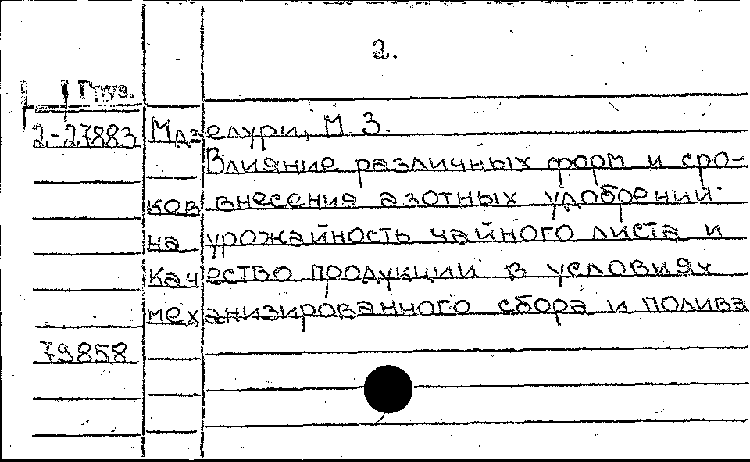 2.
Груз.
2-27883 Мдзелури, М. З.
Влияние различных форм и сро-
ков внесения азотных удобрений
на урожайность чайного листа и
качество продукции в условиях
механизированного сбора и полива
79858